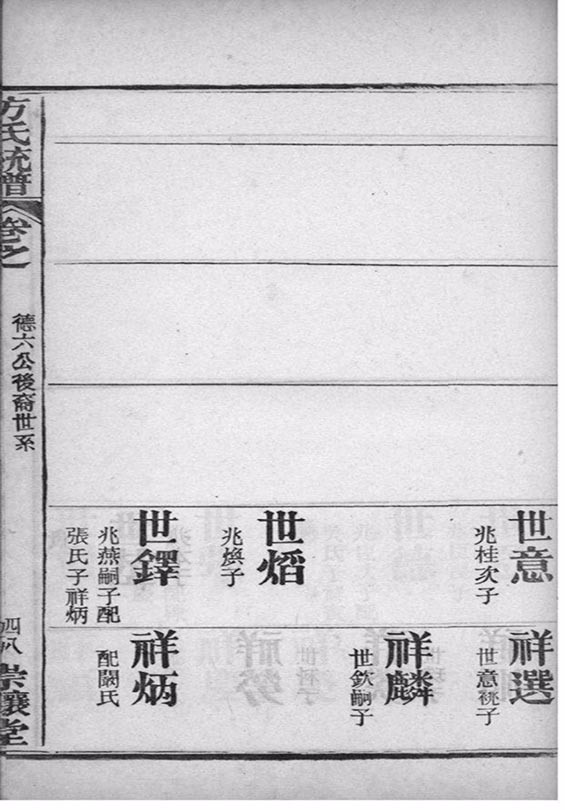 世意
兆桂次子
世熖
兆煥子
世鐸
兆燕嗣子配
張氏子祥炳
祥選
世意祧子
祥麟
世欽嗣子
祥炳
配闞氏
方氏統譜
卷之
德六公後裔世系
四八
崇讓堂